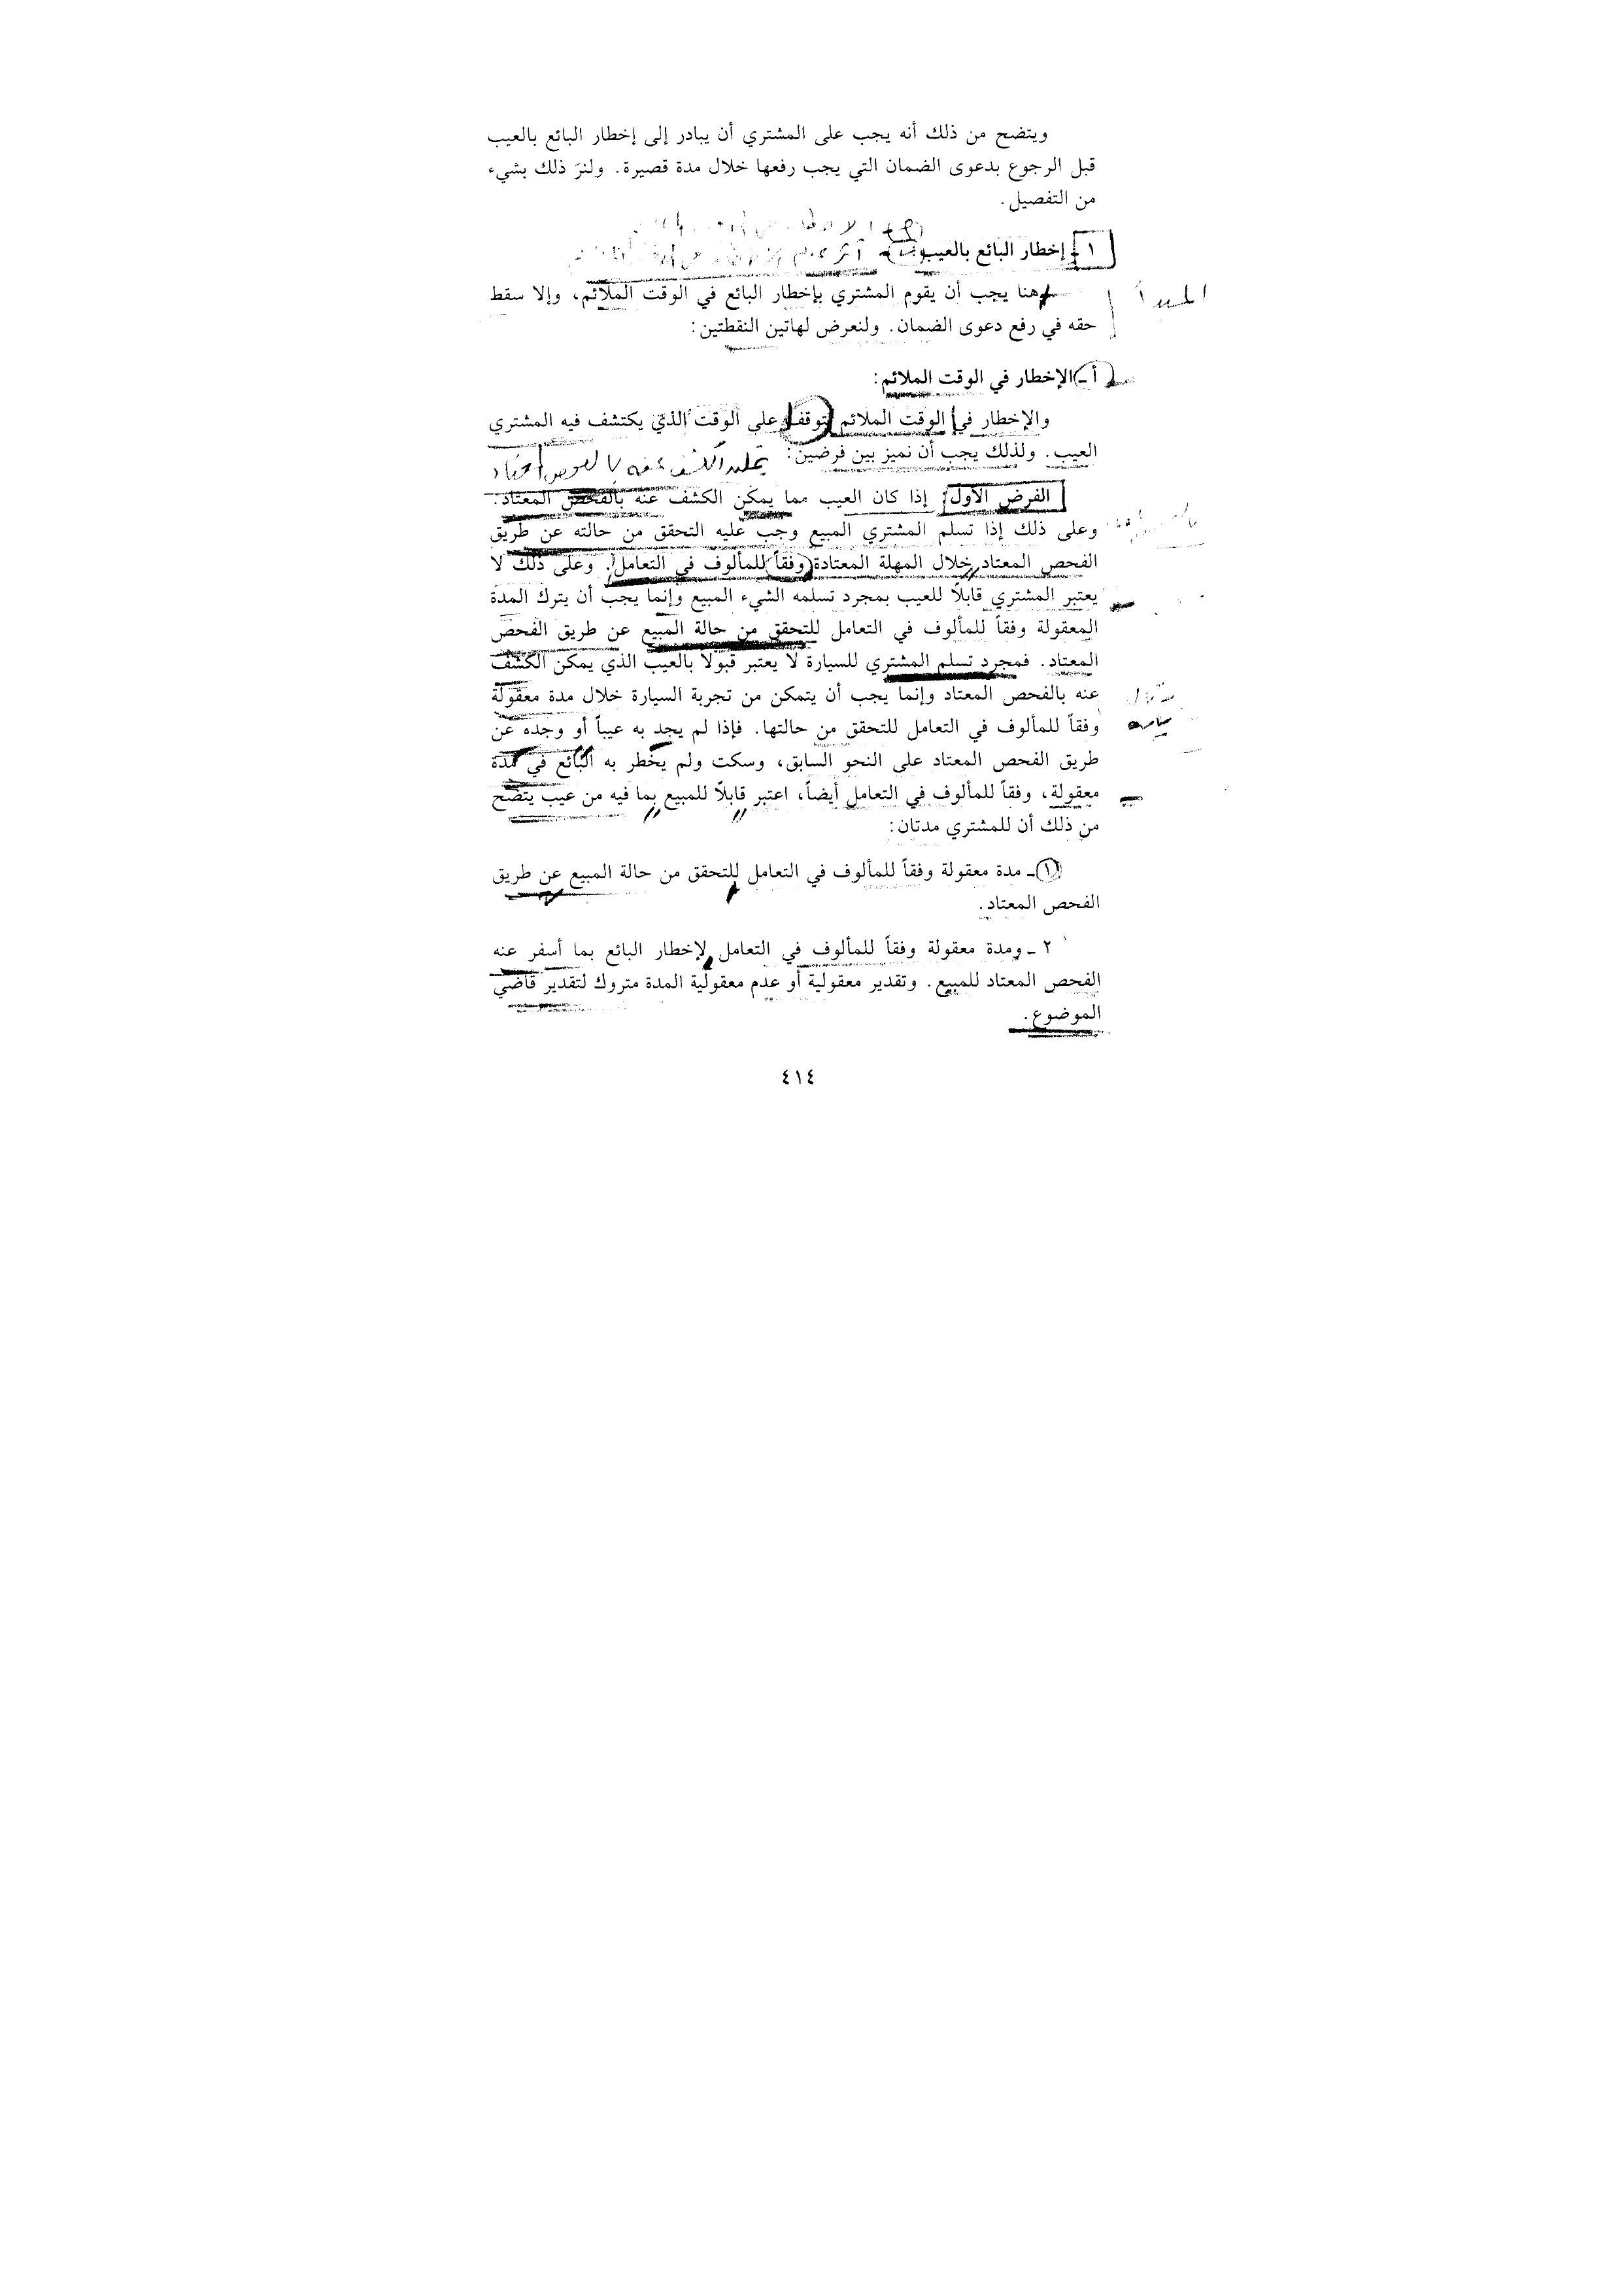 ويتضح من ذلك أنه يجب على المشتري أن يبادر إلى إخطار البائع بالعيب
قبل الرجوع بدعوى الضمان التي يجب رفعها خلال مدة قصيرة. ولنرَ ذلك بشيء
من التفصيل.
١ - إخطار البائع بالعيب
وهنا يجب أن يقوم المشتري بإخطار البائع في الوقت الملائم، وإلا سقط
المبدأ
حقه في رفع دعوى الضمان. ولنعرض لهاتين النقطتين:
أ - الإخطار في الوقت الملائم:
والإخطار في الوقت الملائم يتوقف على الوقت الذي يكتشف فيه المشتري
العيب. ولذلك يجب أن نميز بين فرضين:
الفرض الأول: إذا كان العيب مما يمكن الكشف عنه بالفحص المعتاد.
وعلى ذلك إذا تسلم المشتري المبيع وجب عليه التحقق من حالته عن طريق
الفحص المعتاد خلال المهلة المعتادة وفقاً للمألوف في التعامل. وعلى ذلك لا
يعتبر المشتري قابلاً للعيب بمجرد تسلمه الشيء المبيع وإنما يجب أن يترك المدة
المعقولة وفقاً للمألوف في التعامل للتحقق من حالة المبيع عن طريق الفحص
المعتاد. فمجرد تسلم المشتري للسيارة لا يعتبر قبولاً بالعيب الذي يمكن الكشف
عنه بالفحص المعتاد وإنما يجب أن يتمكن من تجربة السيارة خلال مدة معقولة
وفقاً للمألوف في التعامل للتحقق من حالتها. فإذا لم يجد به عيباً أو وجده عن
طريق الفحص المعتاد على النحو السابق، وسكت ولم يخطر به البائع في مدة
معقولة، وفقاً للمألوف في التعامل أيضاً، اعتبر قابلاً للمبيع بما فيه من عيب يتضح
من ذلك أن للمشتري مدتان:
١ - مدة معقولة وفقاً للمألوف في التعامل للتحقق من حالة المبيع عن طريق
الفحص المعتاد.
٢ - ومدة معقولة وفقاً للمألوف في التعامل لإخطار البائع بما أسفر عنه
الفحص المعتاد للمبيع. وتقدير معقولية أو عدم معقولية المدة متروك لتقدير قاضي
الموضوع.
٤١٤